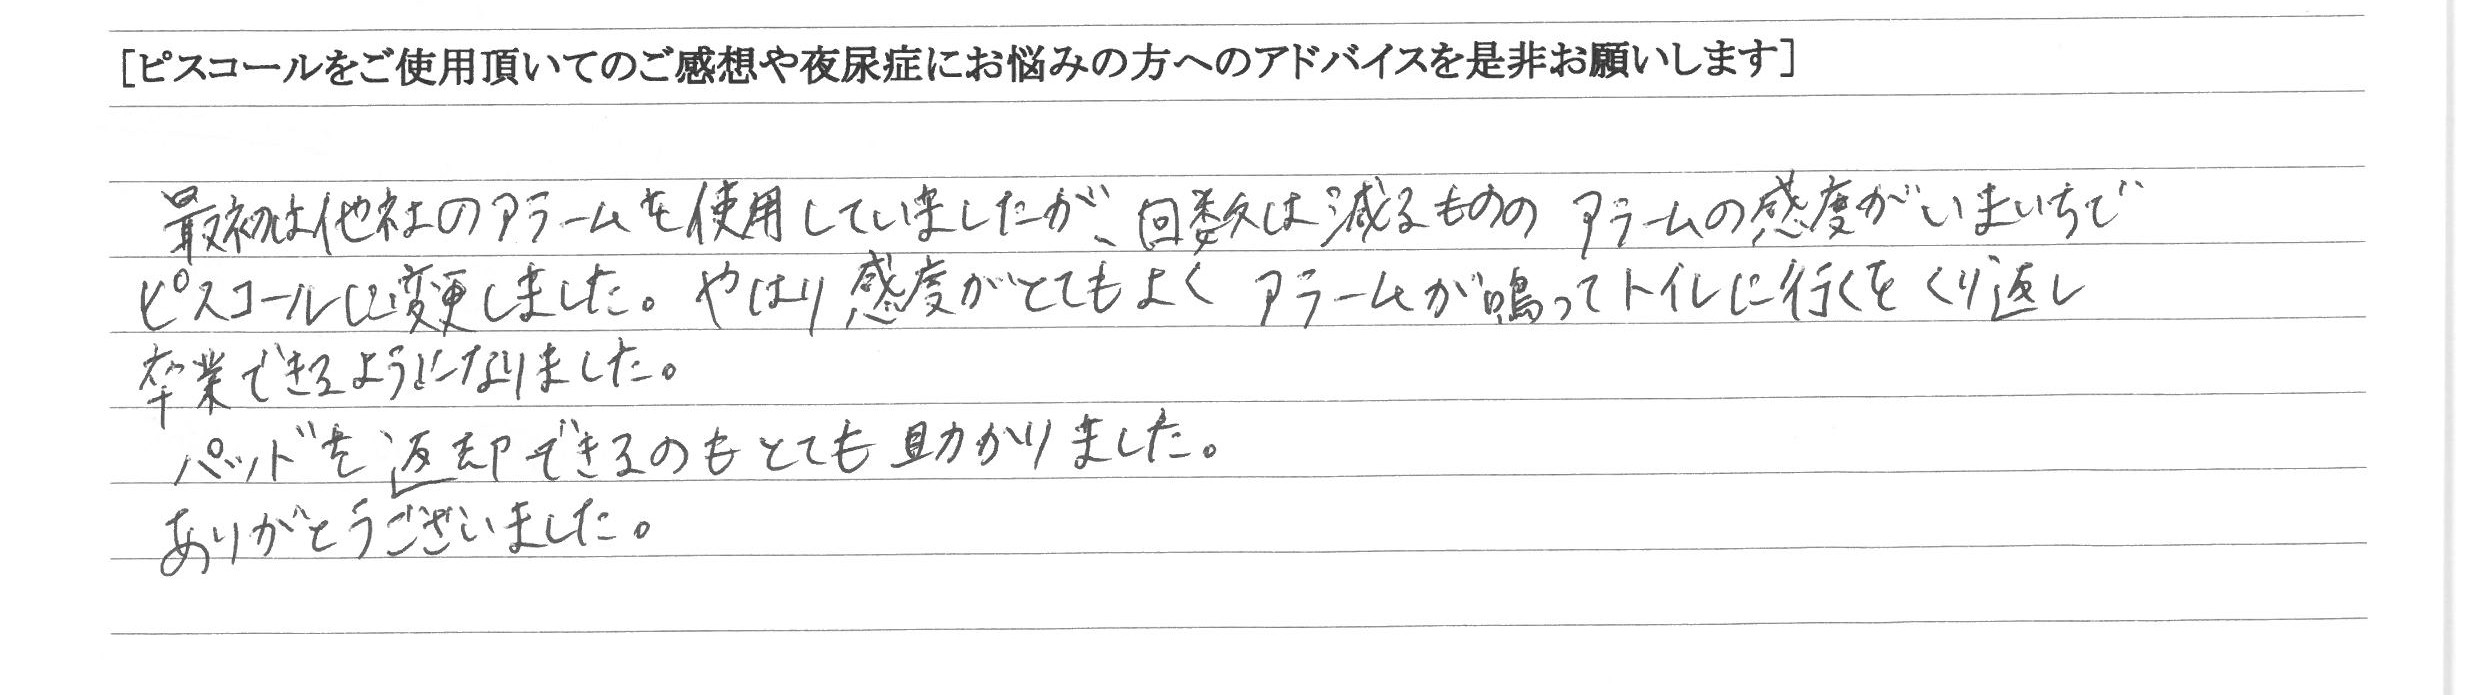 [ピスコールをご使用頂いてのご感想や夜尿症にお悩みの方へのアドバイスを是非お願いします]
最初は他社のアラームを使用していましたが、回数は減るものの アラームの感度がいまいちで
ピスコールに変更しました。やはり感度がとてもよく アラームが鳴ってトイレに行くをくり返し
卒業できるようになりました。
パッドを返却できるのもとても助かりました。
ありがとうございました。